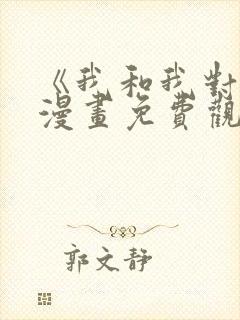 《我和我對
漫畫免費觀
郭文靜